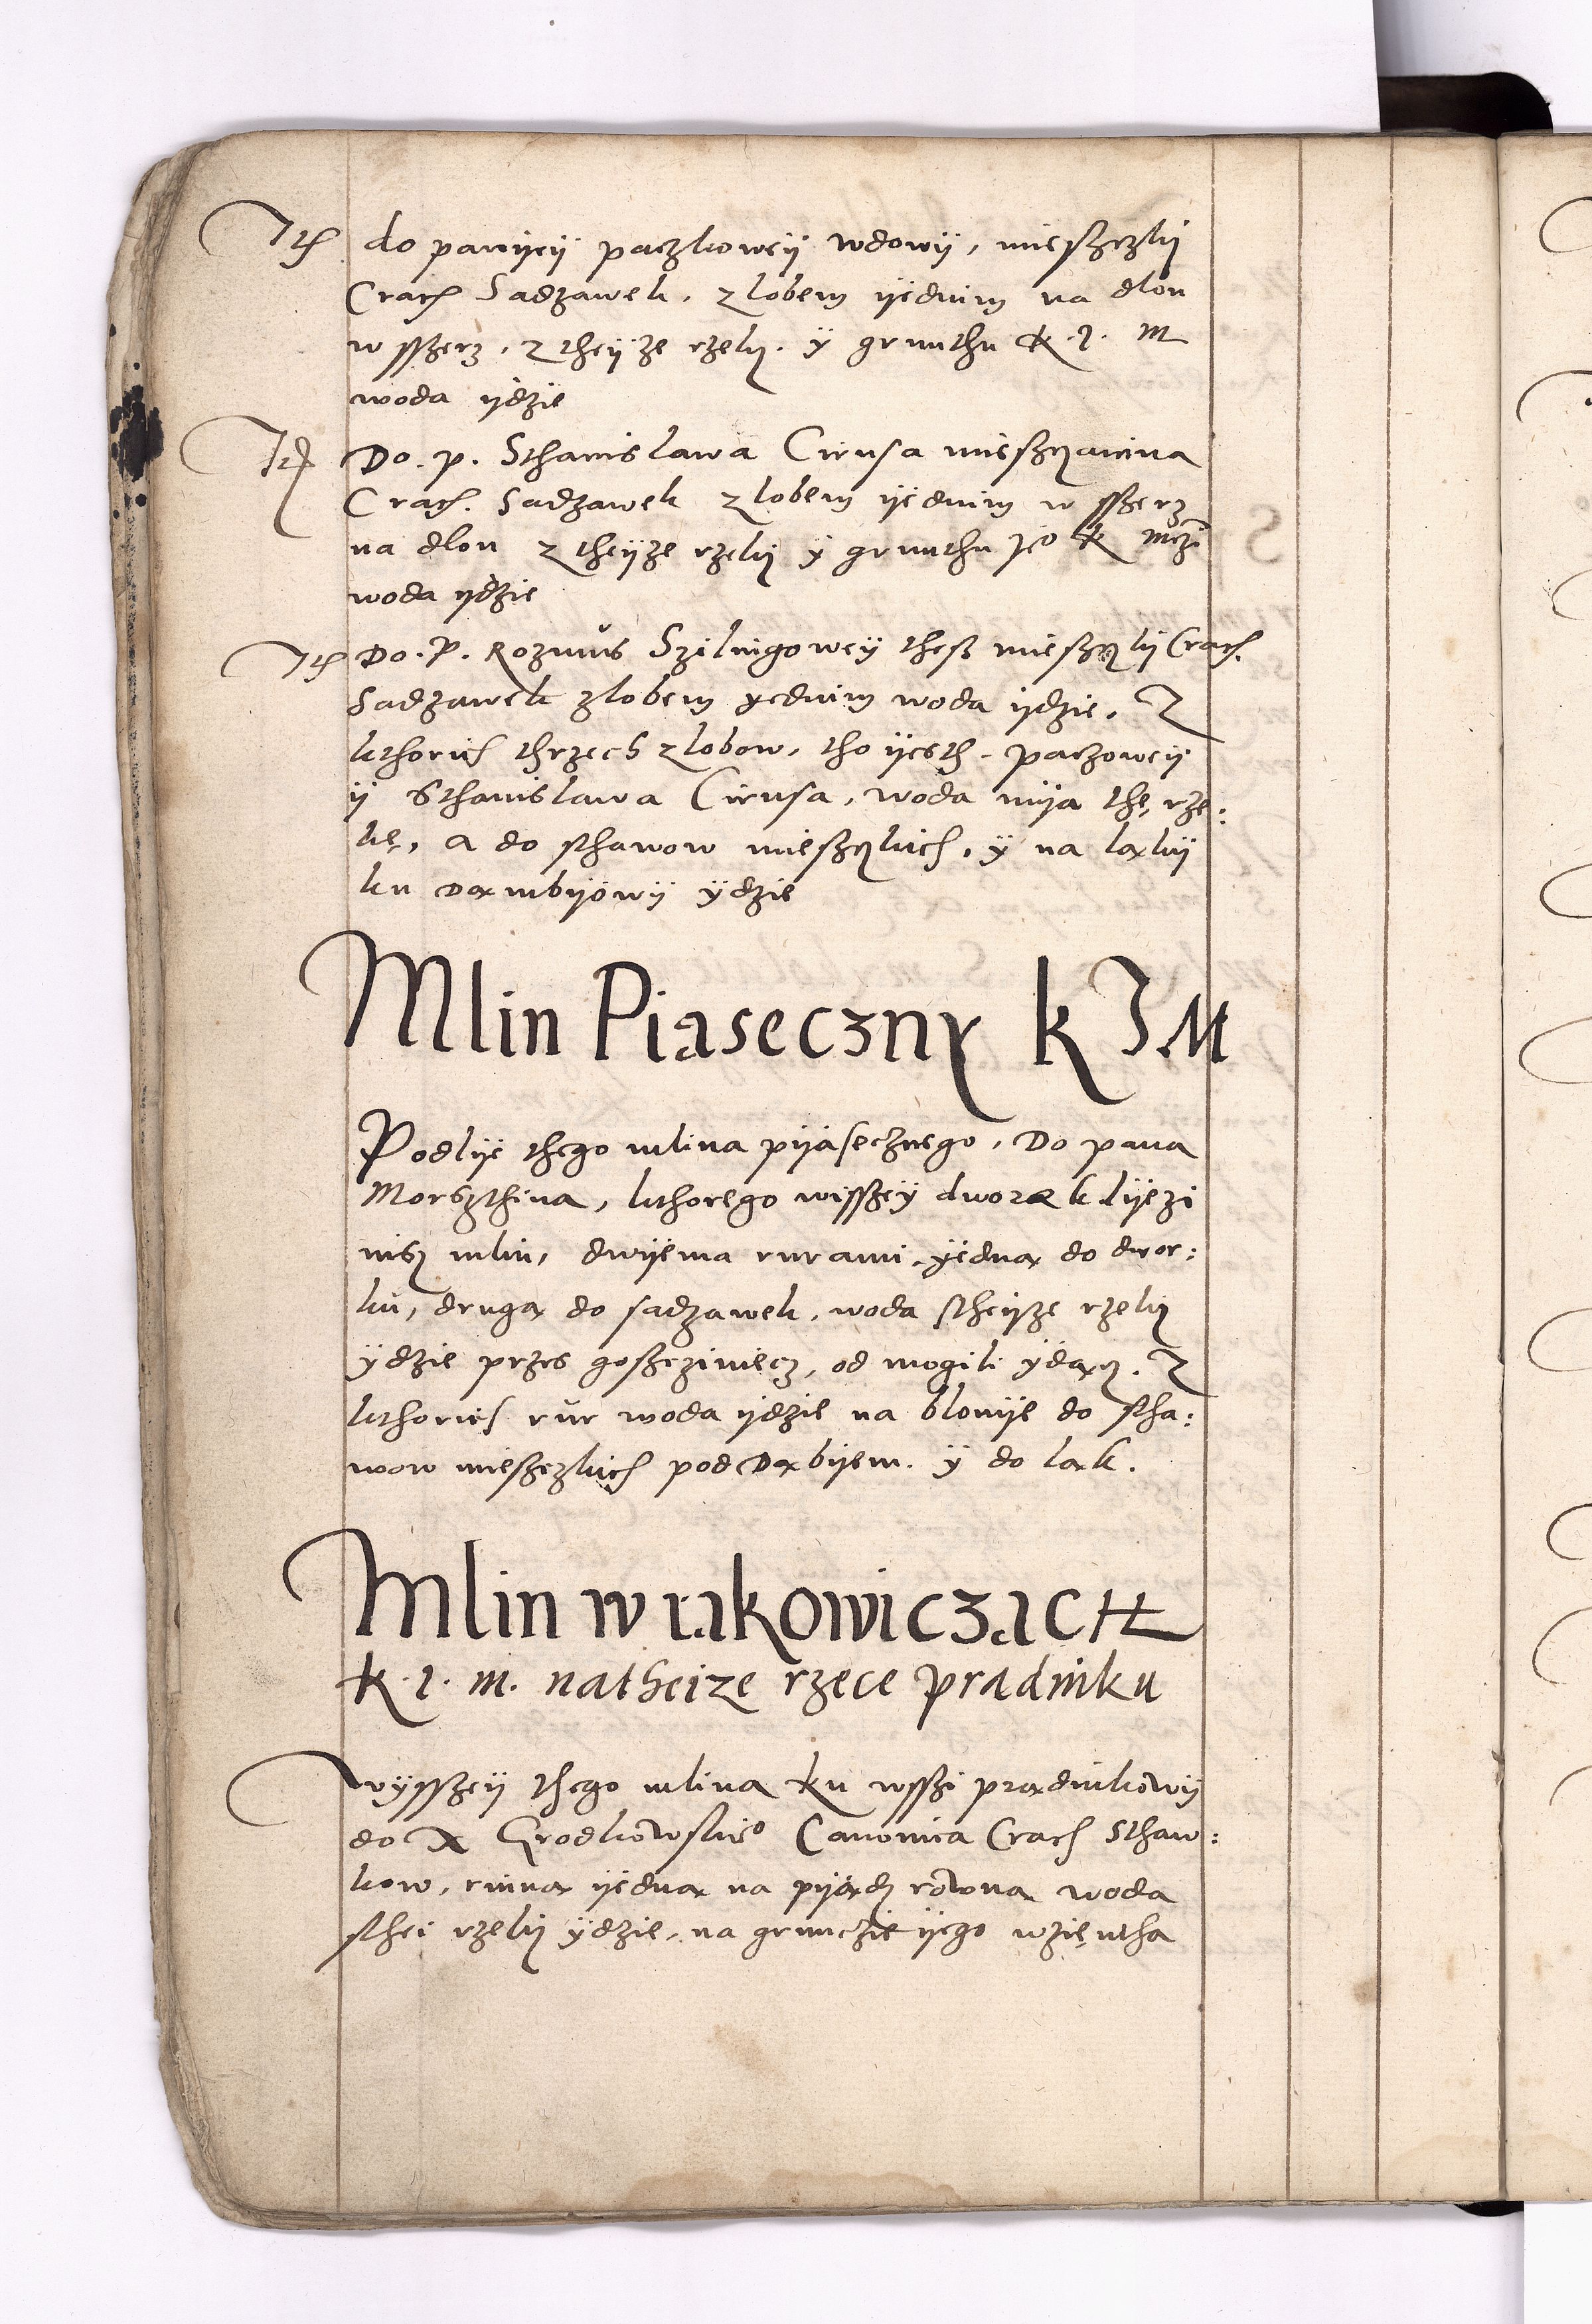 It do paniyey paczkowey wdowij, mieszczkij
Crac Sadzawek, zlobem ijednim na dlon
w sserz, z theijze rzekij. ÿ grunthu k. J. M
woda ijdzie
It Do. p. Sthanislawa Cirusa mieszczanina
Crac. Sadzawek zlobem ijednim w sszerz
na dlon z theijze rzekij ÿ grunthu jeo k Mczi
woda ijdzie
It Do. P. Rozmus Szilingowey thesz mieszczkij Crac.
Sadzawek zlobem yednim woda ijdzie. Z
kthorich thrzech zlobow, tho ijesth. paczowcij
ij Sthanislawa Cirusa, woda mija thę, rze:
kę, a do sthawow mieszczkich, ÿ na ląkij
ku Dąmbijowij ÿdzie
Mlin Piasecznÿ k J M
Podlije thego mlina pijasecznego, Do pana
Morszthina, kthorego wisszeÿ dworek lijezi
nisz mlin, dwijema rurami. ÿedną do dwor:
ku, drugą do sadzawek, woda stheijze rzekij
ÿdzie przes goscziniecz, od mogili ÿdącz. Z
kthorich rur woda ijdzie na blonije do stha:
wow mieszczkich pod Dąbijem. ÿ do ląk.
Mlin w rakowiczach
k. J. m. natheize rzece pradniku
Wysszeij thego mlina ku wsszi prądnikowij
do X Grodkowskieo Canonica Crac Sthaw:
kow, rinną ijedną na pijądz rowną woda
sthei rzekij ÿdzie, na grunczie ijego wzięntha